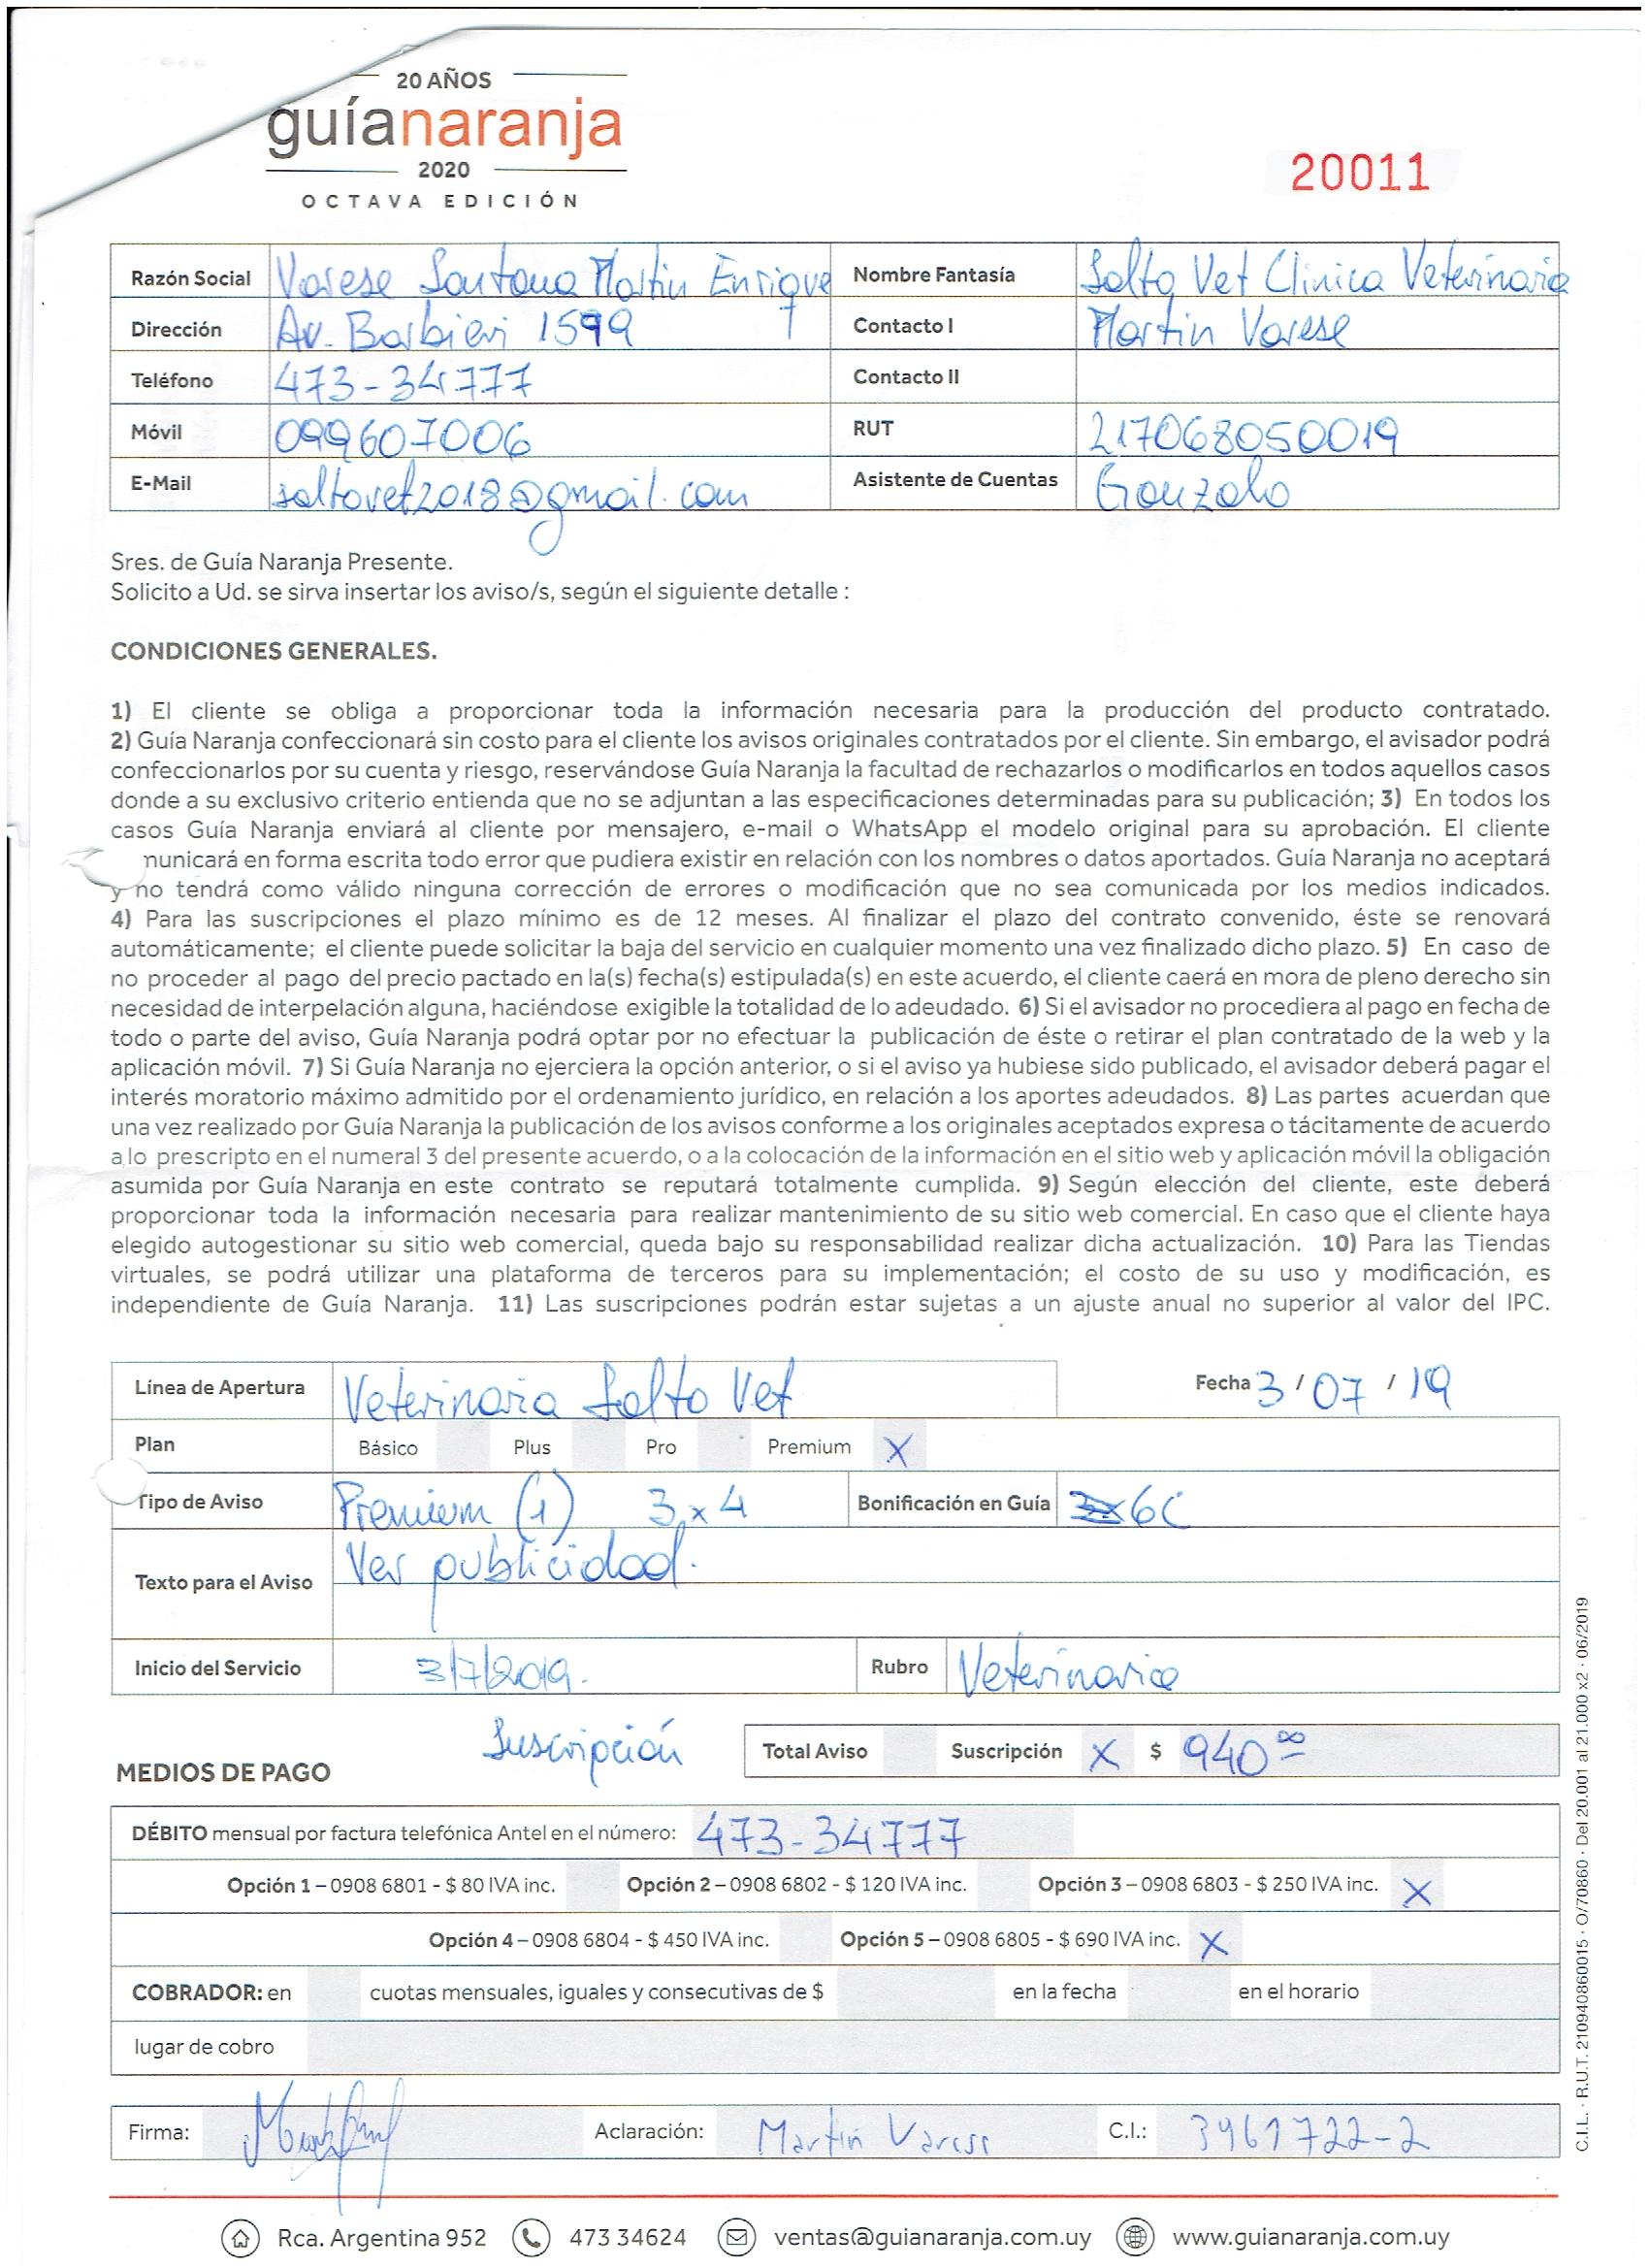 20 AÑOS
guíanaranja
2020
OCTAVA EDICIÓN
20011
Razón Social Varese Santana Martin Enrique Nombre Fantasía Salto Vet Clinica Veterinaria
Dirección Av. Barbieri 1599 Contacto I Martin Varese
Teléfono 473-34777 Contacto II
Móvil 099607006 RUT 217068050019
E-Mail saltovet2018@gmail.com Asistente de Cuentas Gonzalo
Sres. de Guía Naranja Presente.
Solicito a Ud. se sirva insertar los aviso/s, según el siguiente detalle :
CONDICIONES GENERALES.
1) El cliente se obliga a proporcionar toda la información necesaria para la producción del producto contratado.
2) Guía Naranja confeccionará sin costo para el cliente los avisos originales contratados por el cliente. Sin embargo, el avisador podrá
confeccionarlos por su cuenta y riesgo, reservándose Guía Naranja la facultad de rechazarlos o modificarlos en todos aquellos casos
donde a su exclusivo criterio entienda que no se adjuntan a las especificaciones determinadas para su publicación; 3) En todos los
casos Guía Naranja enviará al cliente por mensajero, e-mail o WhatsApp el modelo original para su aprobación. El cliente
municará en forma escrita todo error que pudiera existir en relación con los nombres o datos aportados. Guía Naranja no aceptará
y no tendrá como válido ninguna corrección de errores o modificación que no sea comunicada por los medios indicados.
4) Para las suscripciones el plazo mínimo es de 12 meses. Al finalizar el plazo del contrato convenido, éste se renovará
automáticamente; el cliente puede solicitar la baja del servicio en cualquier momento una vez finalizado dicho plazo. 5) En caso de
no proceder al pago del precio pactado en la(s) fecha(s) estipulada(s) en este acuerdo, el cliente caerá en mora de pleno derecho sin
necesidad de interpelación alguna, haciéndose exigible la totalidad de lo adeudado. 6) Si el avisador no procediera al pago en fecha de
todo o parte del aviso, Guía Naranja podrá optar por no efectuar la publicación de éste o retirar el plan contratado de la web y la
aplicación móvil. 7) Si Guía Naranja no ejerciera la opción anterior, o si el aviso ya hubiese sido publicado, el avisador deberá pagar el
interés moratorio máximo admitido por el ordenamiento jurídico, en relación a los aportes adeudados. 8) Las partes acuerdan que
una vez realizado por Guía Naranja la publicación de los avisos conforme a los originales aceptados expresa o tácitamente de acuerdo
a lo prescripto en el numeral 3 del presente acuerdo, o a la colocación de la información en el sitio web y aplicación móvil la obligación
asumida por Guía Naranja en este contrato se reputará totalmente cumplida. 9) Según elección del cliente, este deberá
proporcionar toda la información necesaria para realizar mantenimiento de su sitio web comercial. En caso que el cliente haya
elegido autogestionar su sitio web comercial, queda bajo su responsabilidad realizar dicha actualización. 10) Para las Tiendas
virtuales, se podrá utilizar una plataforma de terceros para su implementación; el costo de su uso y modificación, es
independiente de Guía Naranja. 11) Las suscripciones podrán estar sujetas a un ajuste anual no superior al valor del IPC.
Línea de Apertura Veterinaria Salto Vet Fecha 3 / 07 / 19
Plan Básico Plus Pro Premium X
Tipo de Aviso Premium (1) 3x4 Bonificación en Guía 6C
Texto para el Aviso Ver publicidad.
Inicio del Servicio 3/7/2019. Rubro Veterinaria
MEDIOS DE PAGO Suscripción Total Aviso Suscripción X $ 940 00
DÉBITO mensual por factura telefónica Antel en el número: 473-34777
Opción 1 – 0908 6801 - $ 80 IVA inc. Opción 2 – 0908 6802 - $ 120 IVA inc. Opción 3 – 0908 6803 - $ 250 IVA inc. X
Opción 4 – 0908 6804 - $ 450 IVA inc. Opción 5 – 0908 6805 - $ 690 IVA inc. X
COBRADOR: en cuotas mensuales, iguales y consecutivas de $ en la fecha en el horario
lugar de cobro
Firma: Aclaración: Martin Varese C.I.: 3961722-2
Rca. Argentina 952 473 34624 ventas@guianaranja.com.uy www.guianaranja.com.uy
C.I.L. · R.U.T. 210940860015 · O/70860 · Del 20.001 al 21.000 x2 · 06/2019